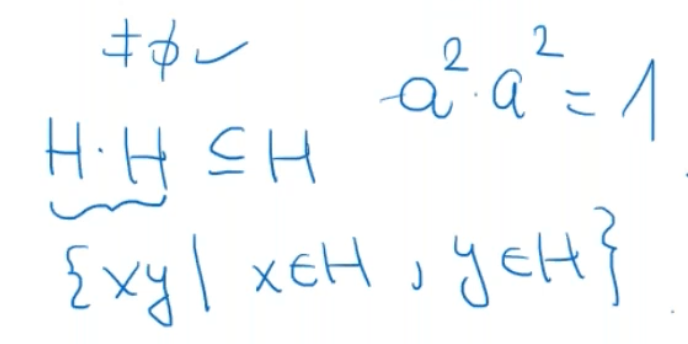 ≠∅ ✓
a²·a² = 1
H·H ⊆ H
{xy | x∈H, y∈H}